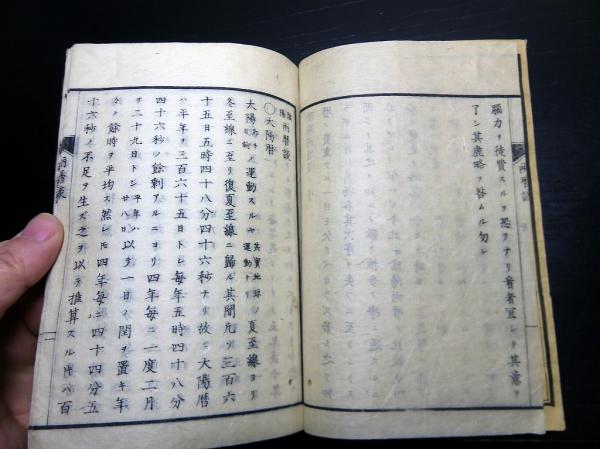 腦力ヲ徒費スルヲ恐ヲナリ看者宜シク其意ヲ
了シ其麁略ヲ咎ムル勿レ
兩曆談
陽兩曆談
○太陽曆
太陽ノ運動スルヤ 其實地球ノ運動トリ 夏至線ヨリ
冬至線ニ至リ復夏至線ニ歸ル其間凡ソ三百六
十五日五時四十八分四十六秒ナリ故ニ大陽曆
ハ平年ヲ三百六十五日トシ每年五時四十八分
四十六秒ノ餘剩アルニヨリ四年每ニ一度二月
ヲ二十九日トシ 平年ハ廿八日 以テ一日ノ閏ヲ置キ年
々ノ餘時ヲ平均ス然レ𪜈四年每ニ四十四分五
十六秒ノ不足ヲ生ズ之ヲ以テ推算スル時ハ百